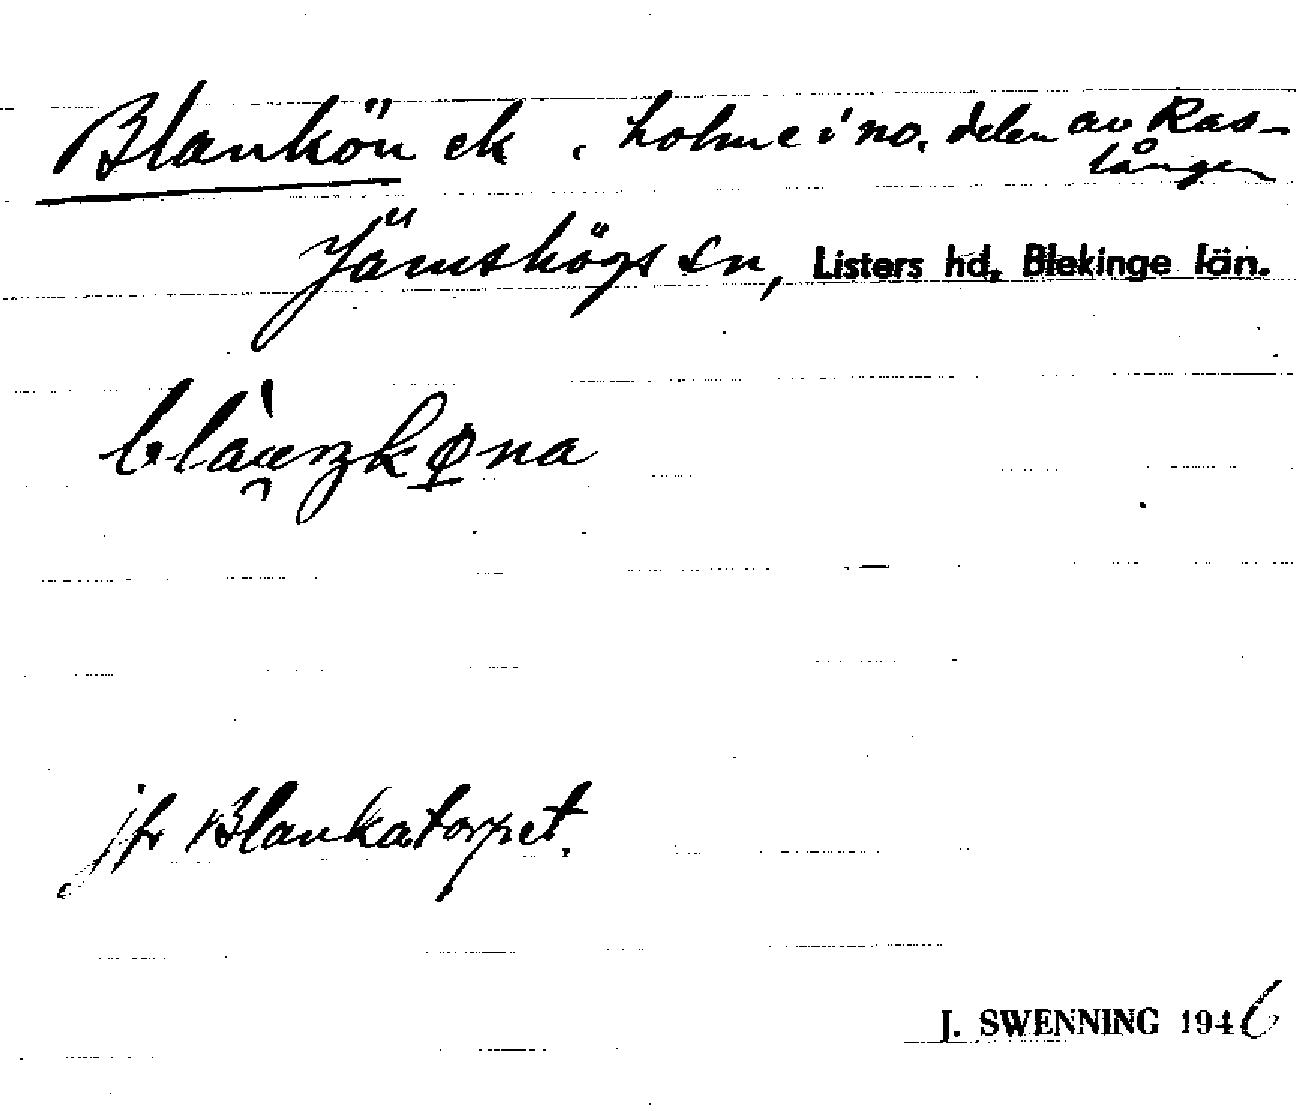 Blankön ek. holme i no. delen av Ras-
lången
Jämshögs sn, Listers hd, Blekinge län.
jfr Blankatorpet.
J. SWENNING 1946